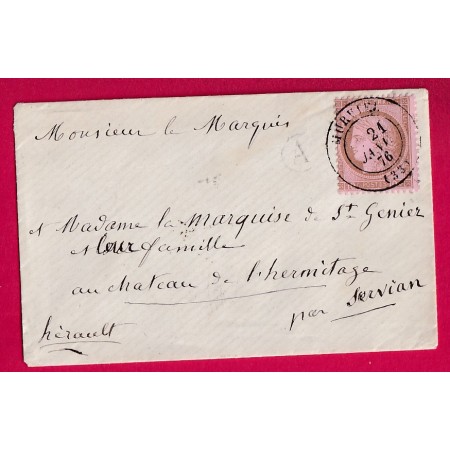 Monsieur le Marquis
et Madame la marquise de St Geniez
et leur famille
au chateau de l'hermitage
par Servian
hérault
A
21
JANV
76
(33)